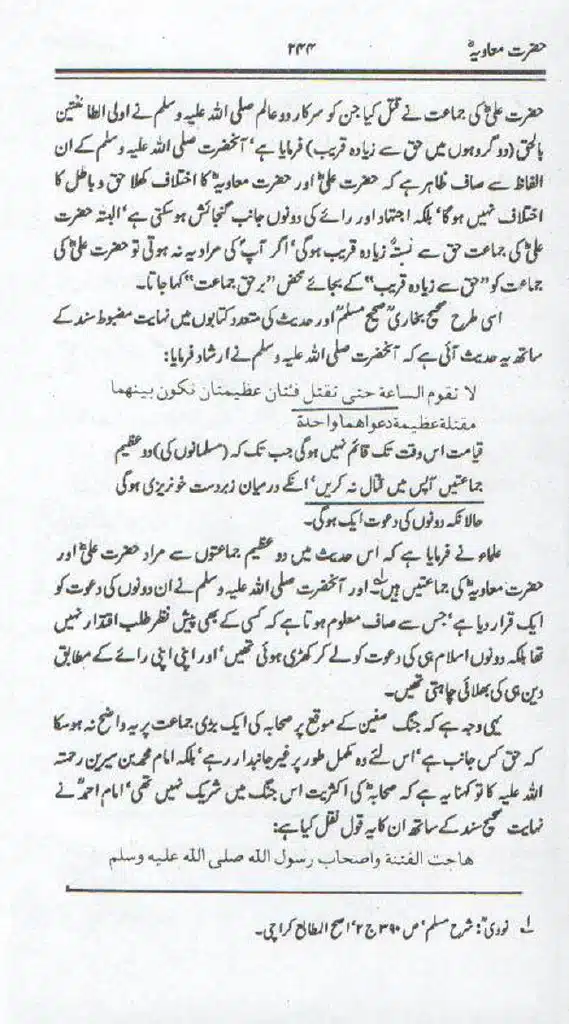 حضرت معاویہؓ ۲۴۴
حضرت علیؓ کی جماعت نے قتل کیا جن کو سرکار دو عالم صلی اللہ علیہ وسلم نے اولی الطائفتین
بالحق (دو گروہوں میں حق سے زیادہ قریب) فرمایا ہے، آنحضرت صلی اللہ علیہ وسلم کے ان
الفاظ سے صاف ظاہر ہے کہ حضرت علیؓ اور حضرت معاویہؓ کا اختلاف کھلا حق و باطل کا
اختلاف نہیں ہوگا، بلکہ اجتہاد اور رائے کی دونوں جانب گنجائش ہوسکتی ہے، البتہ حضرت
علیؓ کی جماعت حق سے نسبتۃً زیادہ قریب ہوگی، اگر آپؐ کی مراد یہ نہ ہوتی تو حضرت علیؓ کی
جماعت کو ”حق سے زیادہ قریب“ کے بجائے محض ”برحق جماعت“ کہا جاتا۔
اسی طرح صحیح بخاریؒ صحیح مسلمؒ اور حدیث کی متعدد کتابوں میں نہایت مضبوط سند کے
ساتھ یہ حدیث آئی ہے کہ آنحضرت صلی اللہ علیہ وسلم نے ارشاد فرمایا:
لا تقوم الساعة حتى تقتل فئتان عظيمتان تكون بينهما
مقتلة عظيمة دعواهما واحدة
قیامت اس وقت تک قائم نہیں ہوگی جب تک کہ (مسلمانوں کی) دو عظیم
جماعتیں آپس میں قتال نہ کریں، انکے درمیان زبردست خونریزی ہوگی
حالانکہ دونوں کی دعوت ایک ہوگی۔
علماء نے فرمایا ہے کہ اس حدیث میں دو عظیم جماعتوں سے مراد حضرت علیؓ اور
حضرت معاویہؓ کی جماعتیں ہیں۱؎ اور آنحضرت صلی اللہ علیہ وسلم نے ان دونوں کی دعوت کو
ایک قرار دیا ہے، جس سے صاف معلوم ہوتا ہے کہ کسی کے بھی پیش نظر طلب اقتدار نہیں
تھا بلکہ دونوں اسلام ہی کی دعوت کو لے کر کھڑی ہوئی تھیں، اور اپنی اپنی رائے کے مطابق
دین ہی کی بھلائی چاہتی تھیں۔
یہی وجہ ہے کہ جنگ صفین کے موقع پر صحابہ کی ایک بڑی جماعت پر یہ واضح نہ ہوسکا
کہ حق کس جانب ہے، اس لئے وہ مکمل طور پر غیر جانبدار رہے، بلکہ امام محمد بن سیرین رحمتہ
اللہ علیہ کا تو کہنا یہ ہے کہ صحابہؓ کی اکثریت اس جنگ میں شریک نہیں تھی، امام احمدؒ نے
نہایت صحیح سند کے ساتھ ان کا یہ قول نقل کیا ہے:
هاجت الفتنة واصحاب رسول الله صلى الله عليه وسلم
۱؎ نوویؒ: شرح مسلم، ص ۳۹۰ ج ۲، اصح المطابع کراچی۔